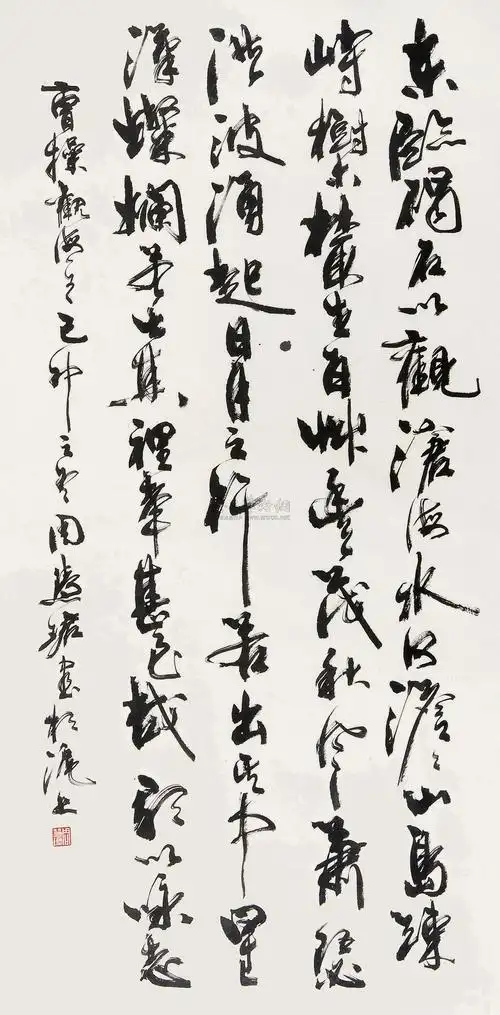 東臨碣石以觀滄海水何澹々山島竦
峙樹木叢生百艸豐茂秋風蕭瑟
洪波湧起日月之行若出其中星
漢燦爛若出其裡幸甚至哉歌以詠志
曹操觀海己卯之冬周慧珺書於滬上